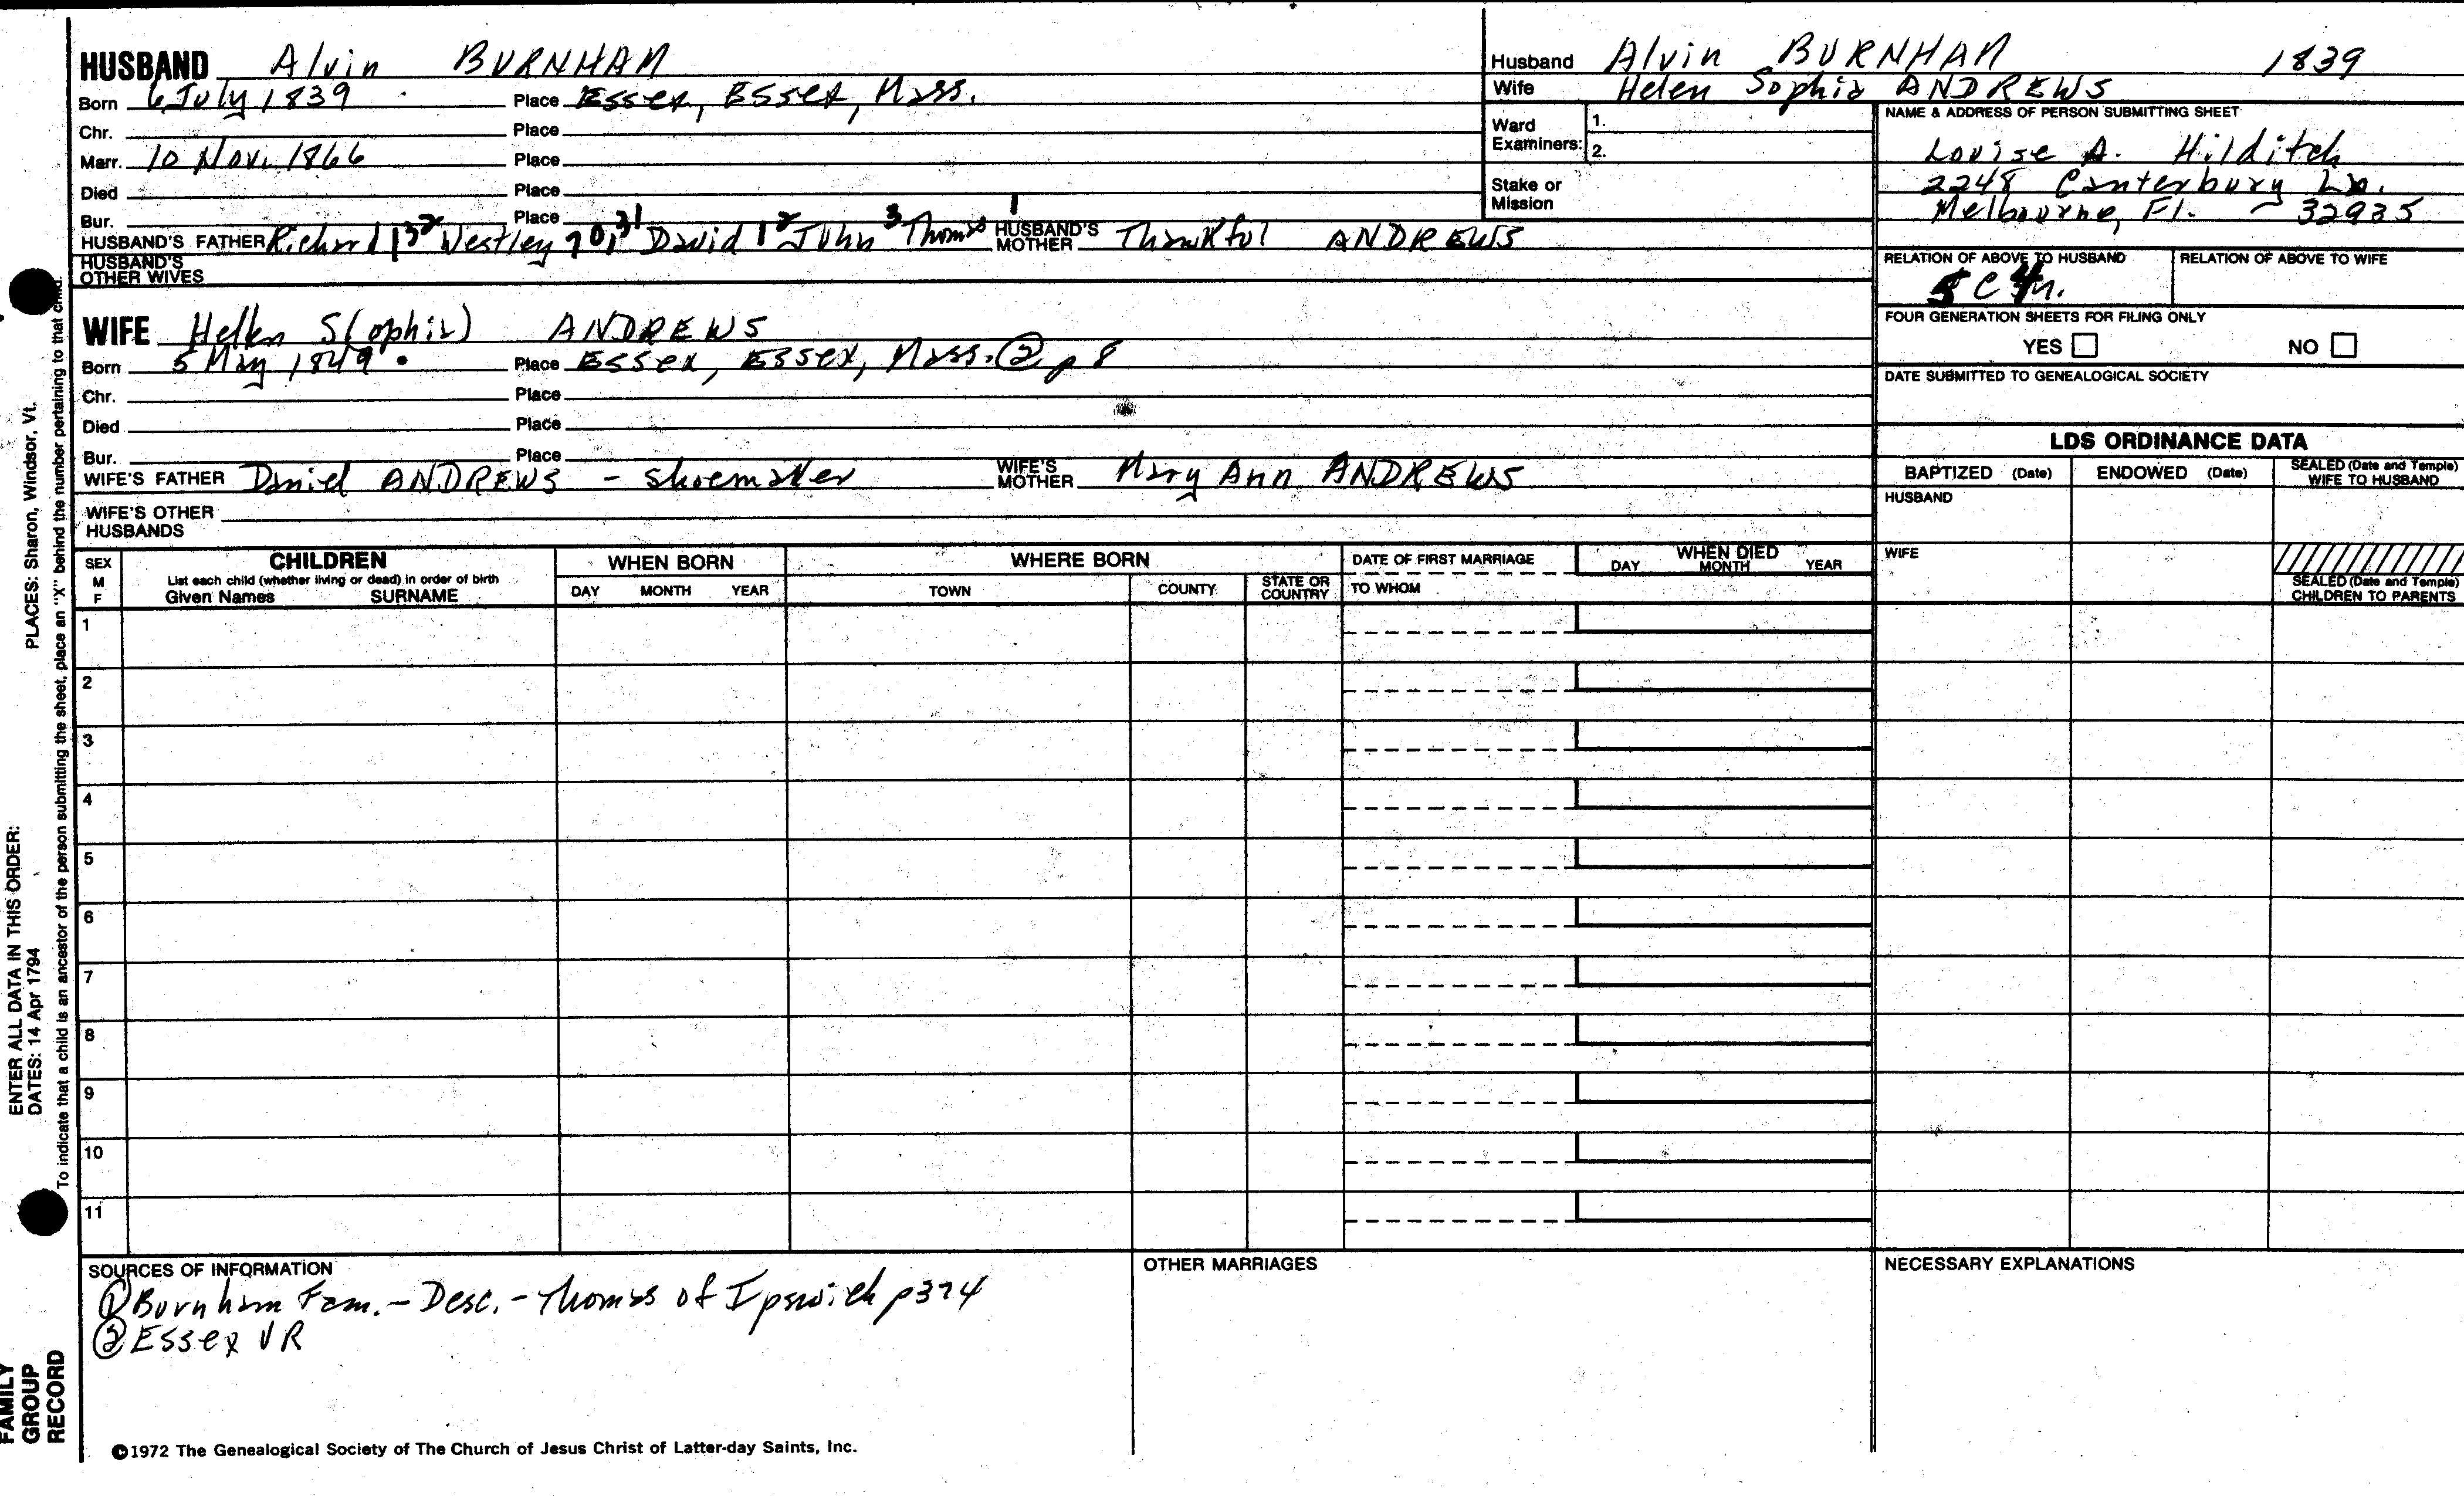 HUSBAND Alvin BURNHAM
Born 6 July 1839 Place Essex, Essex, Mass.
Chr. Place
Marr. 10 Nov. 1866 Place
Died Place
Bur. Place
HUSBAND'S FATHER Richard Westley David John Thomas HUSBAND'S MOTHER Thankful ANDREWS
HUSBAND'S OTHER WIVES
WIFE Hellen S(ophia) ANDREWS
Born 5 May 1849 Place Essex, Essex, Mass. ② p 8
Chr. Place
Died Place
Bur. Place
WIFE'S FATHER Daniel ANDREWS - shoemaker WIFE'S MOTHER Mary Ann ANDREWS
WIFE'S OTHER HUSBANDS
Husband Alvin BURNHAM 1839
Wife Helen Sophia ANDREWS
Ward Examiners: 1.
2.
Stake or Mission
NAME & ADDRESS OF PERSON SUBMITTING SHEET
Louise A. Hilditch
2248 Canterbury Ln.
Melbourne, Fl. - 32935
RELATION OF ABOVE TO HUSBAND RELATION OF ABOVE TO WIFE
FOUR GENERATION SHEETS FOR FILING ONLY
YES NO
DATE SUBMITTED TO GENEALOGICAL SOCIETY
LDS ORDINANCE DATA
BAPTIZED (Date) ENDOWED (Date) SEALED (Date and Temple) WIFE TO HUSBAND
HUSBAND
WIFE
SEALED (Date and Temple) CHILDREN TO PARENTS
SEX M F
CHILDREN
List each child (whether living or dead) in order of birth
Given Names SURNAME
WHEN BORN
DAY MONTH YEAR
WHERE BORN
TOWN COUNTY STATE OR COUNTRY
DATE OF FIRST MARRIAGE
TO WHOM
WHEN DIED
DAY MONTH YEAR
1
2
3
4
5
6
7
8
9
10
11
SOURCES OF INFORMATION
① Burnham Fam. - Desc. - Thomas of Ipswich p374
② Essex VR
OTHER MARRIAGES
NECESSARY EXPLANATIONS
©1972 The Genealogical Society of The Church of Jesus Christ of Latter-day Saints, Inc.
FAMILY GROUP RECORD
ENTER ALL DATA IN THIS ORDER:
DATES: 14 Apr 1794
PLACES: Sharon, Windsor, Vt.
To indicate that a child is an ancestor of the person submitting the sheet, place an "X" behind the number pertaining to that child.